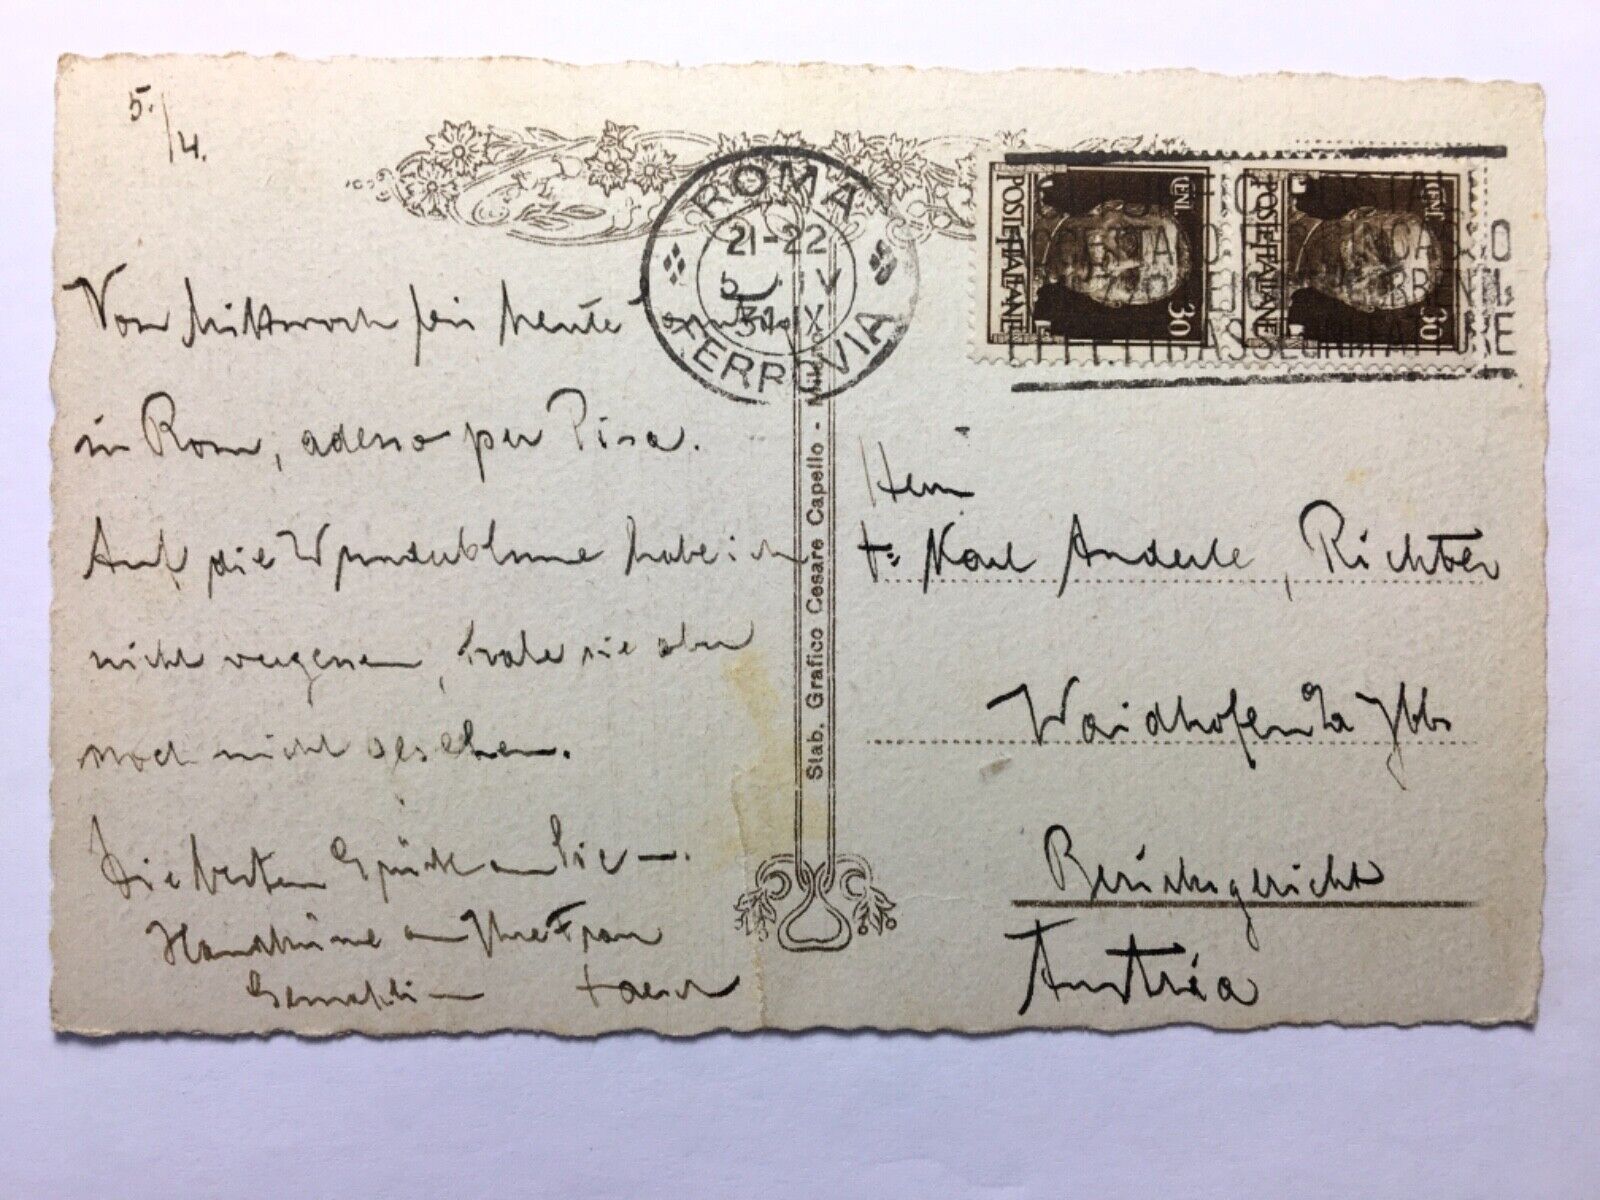 5./4.
ROMA
21-22
5 IV
31 IX
FERROVIA
POSTE ITALIANE
CENT.
30
POSTE ITALIANE
CENT.
30
Von Mittwoch bis heute
in Rom, adesso per Pisa.
Auf die Wunderblume habe ich
nicht vergessen, habe sie aber
noch nicht gesehen.
Die besten Grüße an Sie —.
Handküsse an Ihre Frau
Gemahlin
Stab. Grafico Cesare Capello - Milano
Herrn
Dr Karl Anderle, Richter
Waidhofen a/a Ybbs
Bezirksgericht
Austria